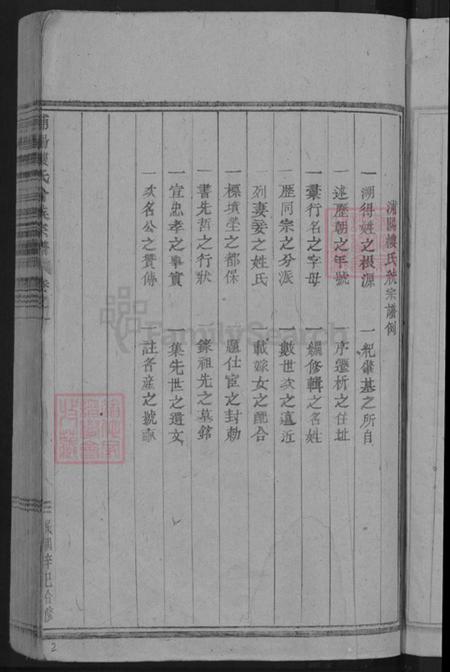 浦陽樓氏統宗譜例
一溯得姓之根源 一紀肇基之所自
一述歷朝之年號 一序遷析之住址
一彙行名之字母 一編修輯之名姓
一歷同宗之分派 一數世次之遠近
一列妻妾之姓氏 一載嫁女之配合
一標墳塋之都保 一題仕宦之封勅
一書先哲之行狀 一錄祖先之墓銘
一宣忠孝之事實 一集先世之遺文
一次名公之贊傳 一註各產之號畝
氏合族宗譜
辛巳合修
FamilySearch
2